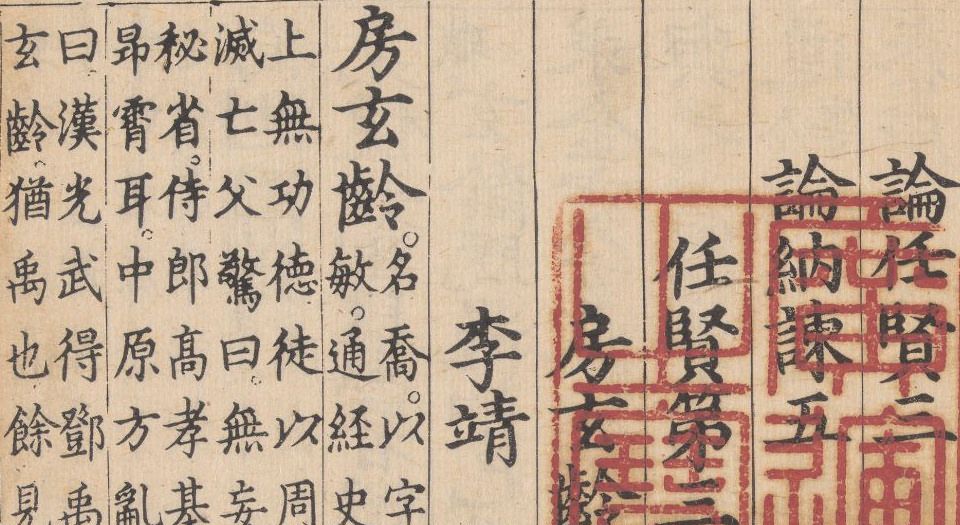 論任賢三
論納諫五
任賢第三
房玄齡
李靖
房玄齡。
名喬。以字
敏。通経史
上無功徳徒以周
滅亡父驚曰。無妄
秘省。侍郎髙孝基
昴霄耳。中原方亂
曰漢光武得鄧禹
玄齡。猶禹也餘見